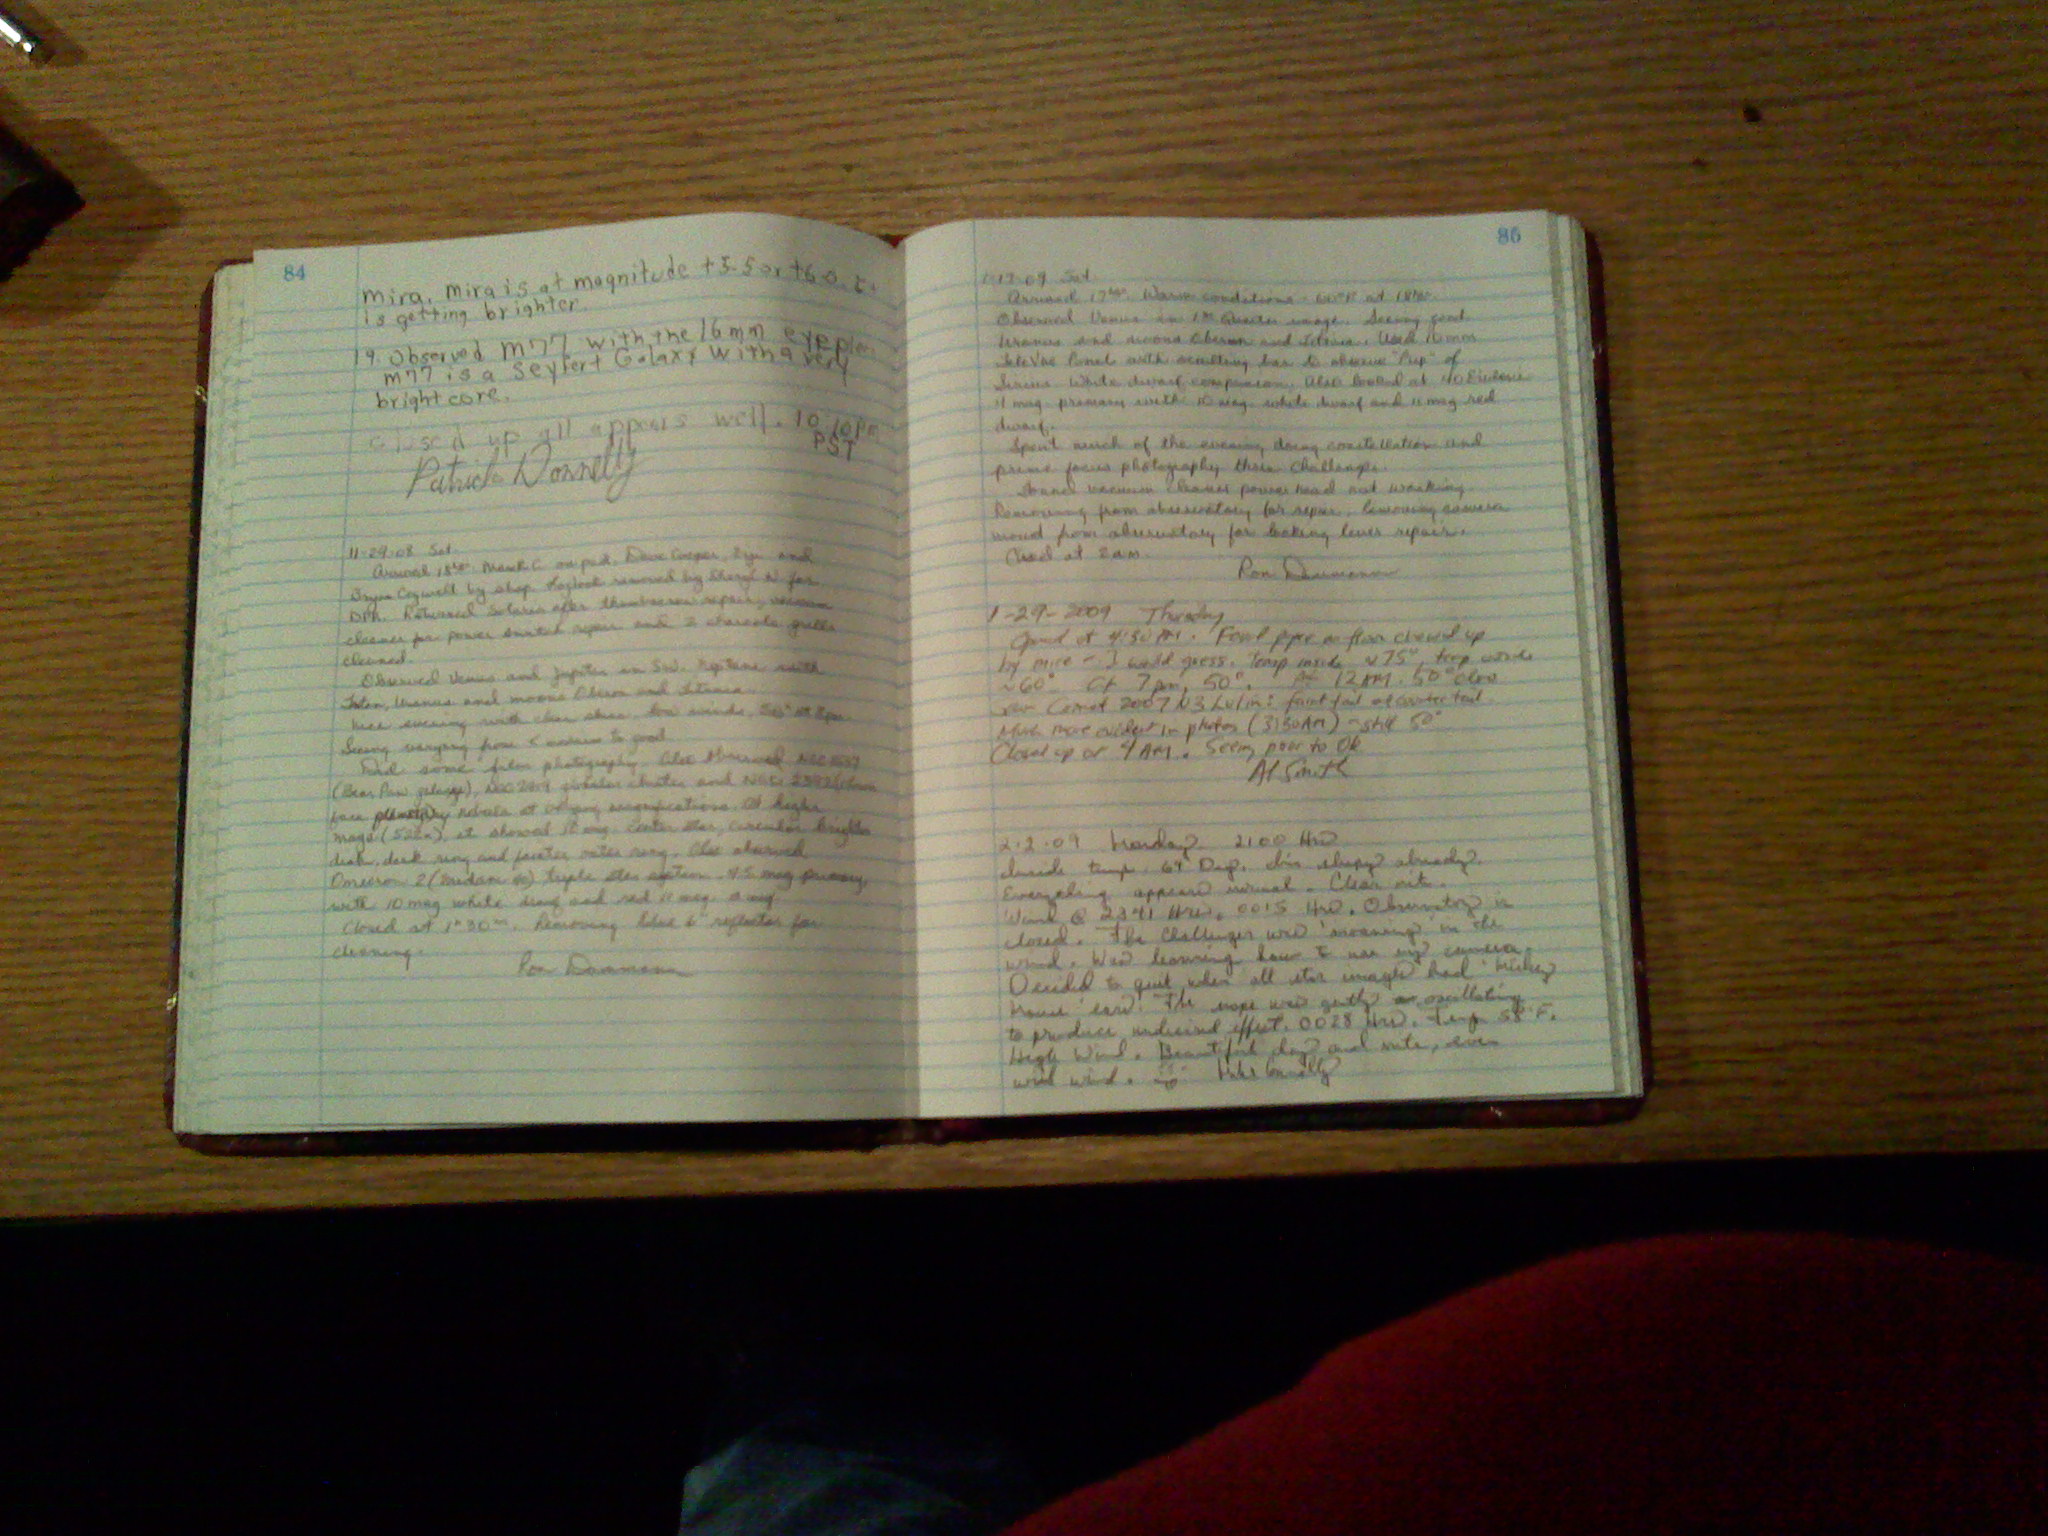 84
Mira. Mira is at magnitude +5.5 or +6.0. It
is getting brighter.
19. Observed M77 with the 16mm
M77 is a Seyfert Galaxy with a very
bright core.
closed up all appears well. 10:10 PM
PST
Patrick Donnelly
11-29-08 Sat
Arrived Mark C. on pad, Dave Cooper, and
Bryan Cogwell by shop. removed by Sheryl W for
DPA. Returned Solaris after thumbscrew repair, vacuum
cleaner for power switch repair and 2 charcoal grills
cleaned.
Observed Venus and Jupiter in SW. Neptune with
Triton, Uranus and moons Oberon and Titania.
Nice evening with clear skies, low winds, 50° at 8pm.
Seeing varying from to good.
Did some film photography. Also observed NGC
(Bear Paw galaxy), NGC 2419 globular cluster and NGC 2392 (clown
face planetary nebula at varying magnifications. At higher
mags (522x) it showed 10 mag. center star, circular bright
disk, dark ring and fainter outer ring. Also observed
Omicron 2 (Eridani 40) triple star system. 4.5 mag primary,
with 10 mag white dwarf and red 11 mag dwarf
Closed at 1 30. Removing blue 6" reflector for
cleaning.
Ron Daumann
85
1-17-09 Sat
Arrived 17 . Warm conditions. 60°F at 18
Observed Venus in 1st Quarter image. Seeing good.
Uranus and moons Oberon and Titania. Used 16mm
TeleVue with occulting bar to observe "Pup" of
Sirius. White dwarf companion. Also looked at 40 Eridani
4 mag. primary with 10 mag. white dwarf and 11 mag red
dwarf.
Spent much of the evening doing constellation and
prime focus photography thru Challenger.
Found vacuum cleaner power head not working.
Removing from observatory for repair. Removing camera
mount from observatory for locking lever repair.
Closed at 2am.
Ron Daumann
1-29-2009 Thursday
Opened at 4:30 PM. Found paper on floor chewed up
by mice - I would guess. Temp inside ~75°, temp outside
~60°. At 7pm, 50°. At 12AM 50° also
saw Comet 2007 N3 Lulin: faint tail & countertail.
Much more evident in photos (3:30AM) - still 50°
Closed up at 4 AM. Seeing poor to Ok
Al Smith
2-2-09 Monday 2100 Hrs
Inside temp. 69 Deg. I'm sleepy already.
Everything appears normal. Clear nite.
Wind @ 2341 Hrs. 0015 Hrs. Observatory is
closed. The Challenger was "moaning" in the
wind. Was learning how to use my camera.
Decided to quit when all star images had "Mickey
Mouse" ears. The scope was gently oscillating
to produce undesired effect. 0028 Hrs. Temp 58° F.
High Wind. Beautiful day and nite, even
with wind.
Mike Connelly